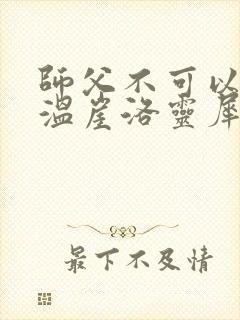 師父不可以
溫崖洛靈犀
最下不及情